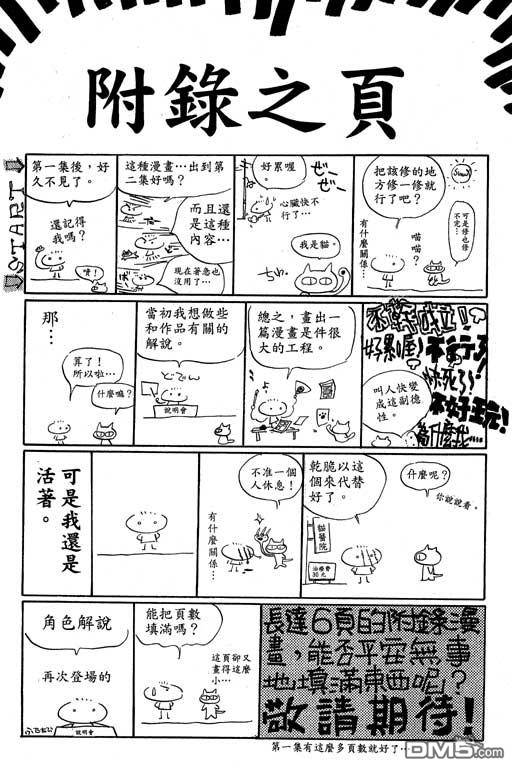 附錄之頁
START
第一集後,好
久不見了。
還記得
我嗎?
噴!
這種漫畫…出到第
二集好嗎?
而且還
是這種
內容…
現在著急也
沒用了…
好累喔。
ぜー
ぜー
心臟快不
行了…
我是貓。
把該修的地
方修一修就
行了吧?
有什麼關係…
喵
喵?
可是修也修
不完…
那…
算了!
所以啦…
什麼嘛?
當初我想做些
和作品有關的
解說。
どでん
說明會
總之,畫出一
篇漫畫是件很
大的工程。
不幹啦!
好累喔!
不行了!
快死了~
不好玩!
為什麼我…
叫人快變
成這副德
性。
可是我還是
活著。
不准一個
人休息!
有什麼關係…
乾脆以這
個來代替
好了。
貓醫院
治療費
30元
什麼呢?
你說說看。
角色解說
再次登場的
說明會
能把頁數
填滿嗎?
這頁卻又
畫得這麼
小…
長達6頁的附錄漫
畫,能否平安無事
地填滿東西呢?
敬請期待!
第一集有這麼多頁數就好了…
DM5.com